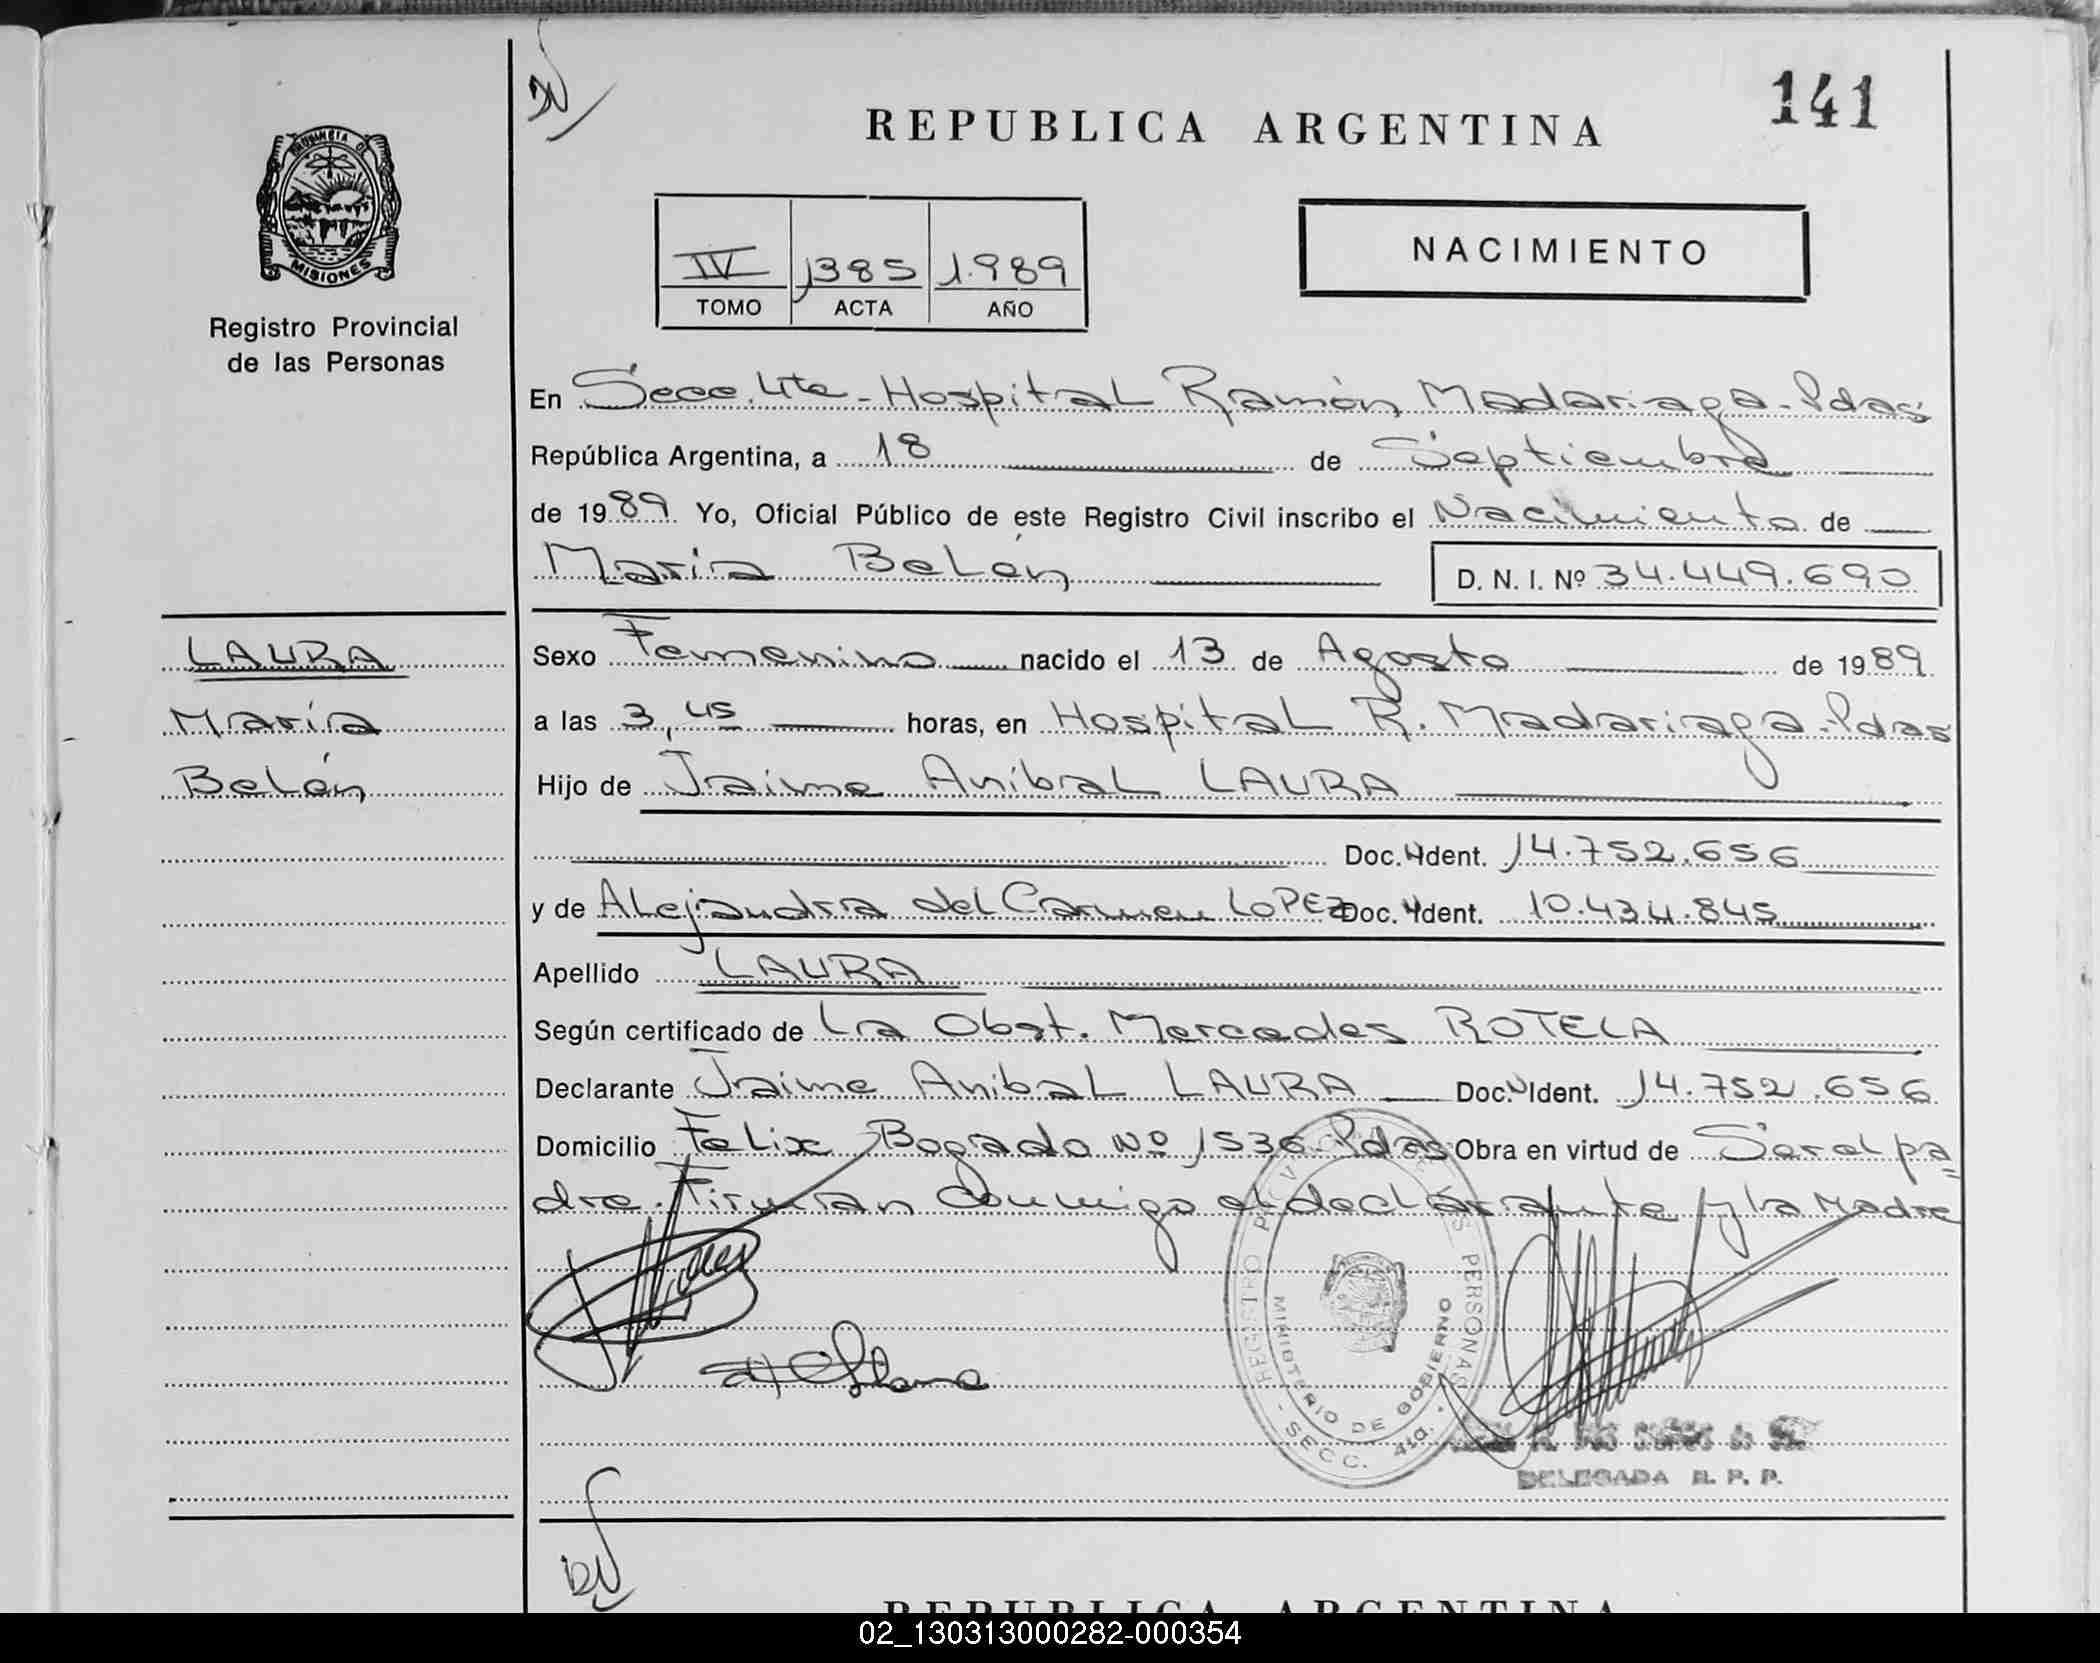 141
REPUBLICA ARGENTINA
PROVINCIA DE
MISIONES
Registro Provincial
de las Personas
IV 1385 1.989
TOMO ACTA AÑO
NACIMIENTO
En Secc. 4ta - Hospital Ramón Madariaga - Pdas
República Argentina, a 18 de Septiembre
de 1989 Yo, Oficial Público de este Registro Civil inscribo el Nacimiento de
María Belén D. N. I. Nº 34.449.690
LAURA
María
Belén
Sexo Femenino nacido el 13 de Agosto de 1989
a las 3,45 horas, en Hospital R. Madariaga - Pdas
Hijo de Jaime Aníbal LAURA
Doc. Ident. 14.752.656
y de Alejandra del Carmen LOPEZ Doc. Ident. 10.434.845
Apellido LAURA
Según certificado de La Obst. Mercedes ROTELA
Declarante Jaime Anibal LAURA Doc. Ident. 14.752.656
Domicilio Felix Bogado Nº 1536 - Pdas Obra en virtud de Ser el pa=
dre. Firman conmigo el declarante y la Madre
REGISTRO PROV. DE LAS PERSONAS
MINISTERIO DE GOBIERNO
- SECC. 4ta. -
DELEGADA R. P. P.
REPUBLICA ARGENTINA
02_130313000282-000354